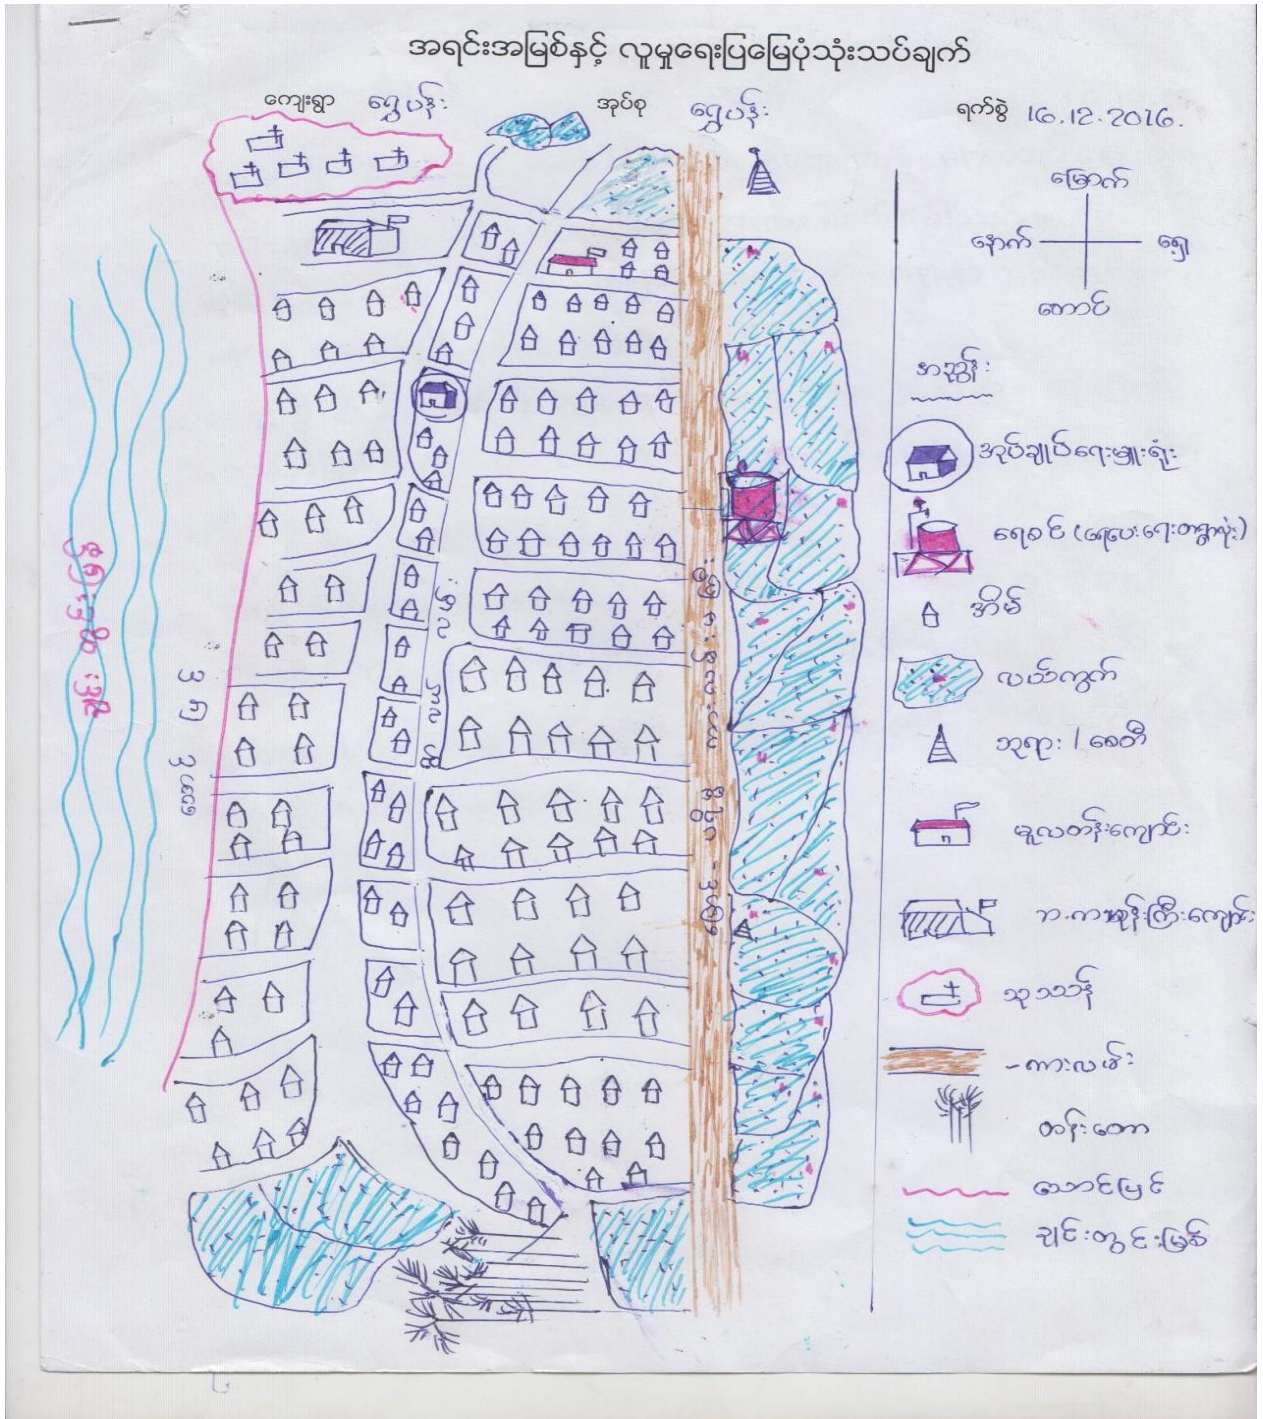 အရင်းအမြစ်နှင့် လူမှုရေးပြမြေပုံသုံးသပ်ချက်
ကျေးရွာ ရွှေပန်း အုပ်စု ရွှေပန်း ရက်စွဲ 16.12.2016.
မြောက်
နောက် ရှေ့
တောင်
အညွှန်း
အုပ်ချုပ်ရေးမှူးရုံး
ရေစင် (ရေပေးရေးတစ်ရွာလုံး)
အိမ်
လယ်ကွက်
ဘုရား / စေတီ
မူလတန်းကျောင်း
ဘ.က ဘုန်းကြီးကျောင်း
သုသာန်
- ကားလမ်း
ထန်းတော
သောင်ပြင်
ချင်းတွင်းမြစ်